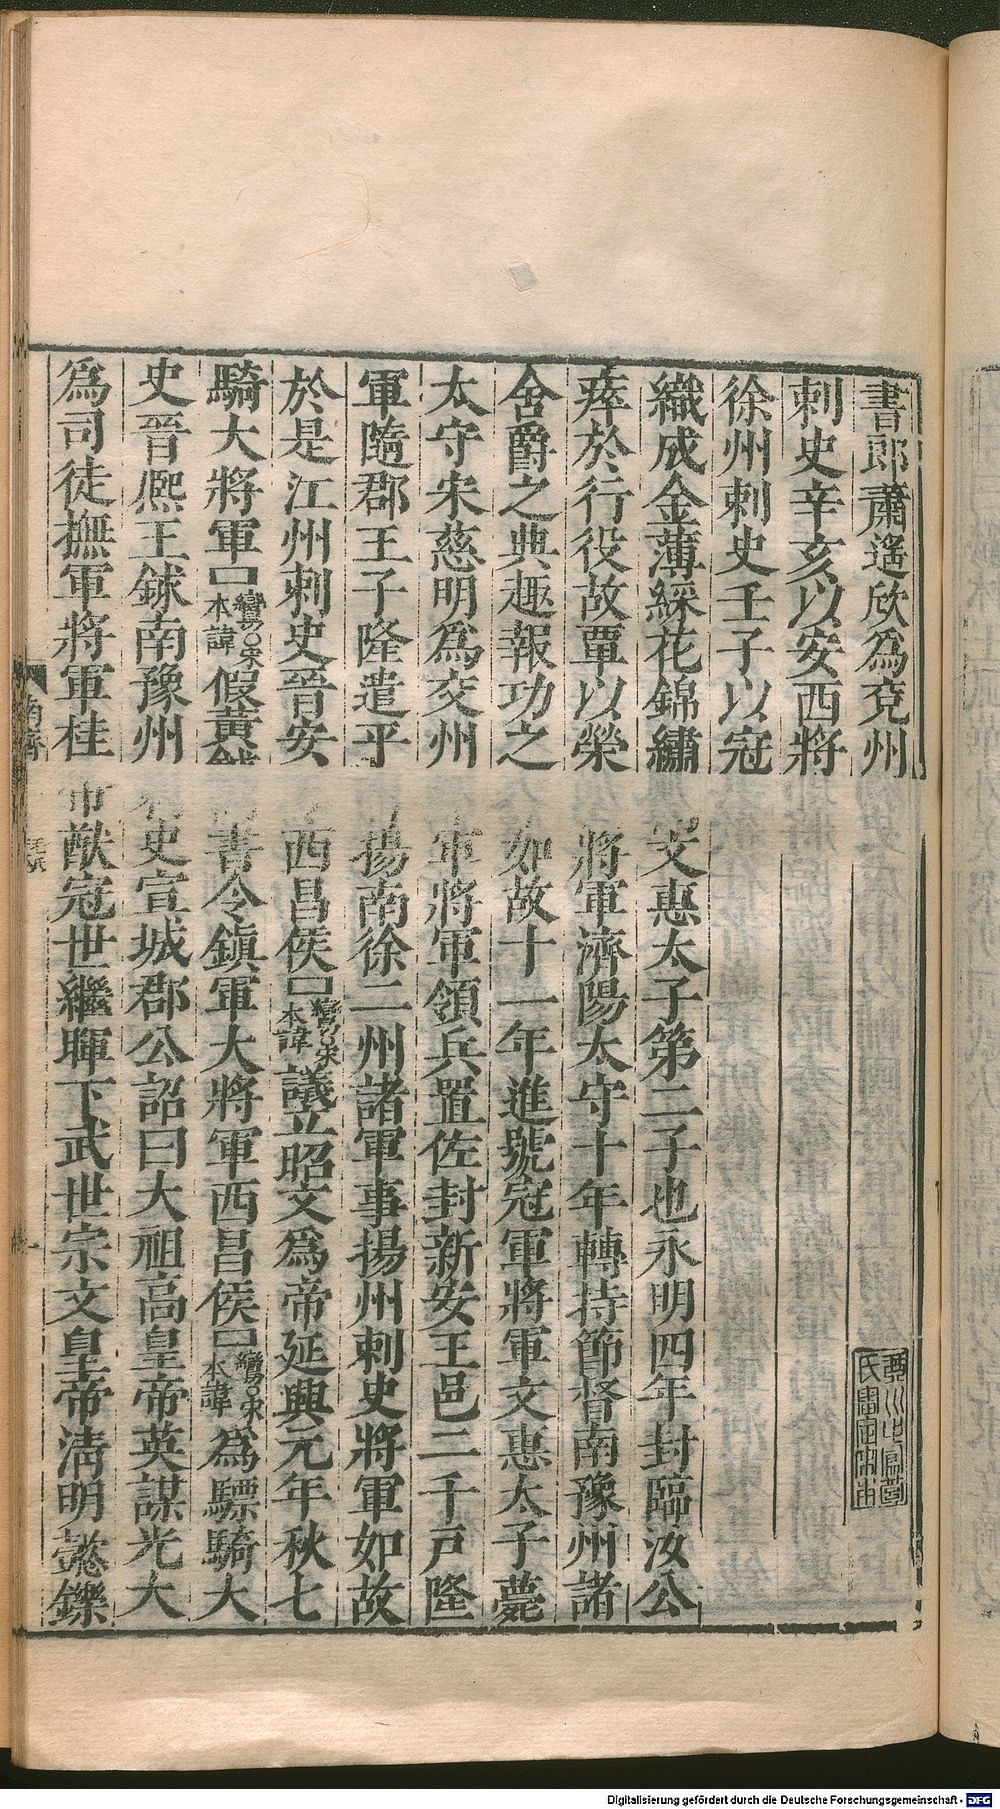 書郎蕭遙欣為兗州
刺史辛亥以安西將
徐州刺史壬子以冠
織成金薄綵花錦繡文惠太子第二子也永明四年封臨汝公
瘁於行役故覃以榮將軍濟陽太守十年轉持節督南豫州諸
舍爵之典趣報功之如故十一年進號冠軍將軍文惠太子薨
太守宋慈明為交州軍將軍領兵置佐封新安王邑二千戶隆
軍隨郡王子隆遣平揚南徐二州諸軍事揚州刺史將軍如故
於是江州刺史晉安西昌侯□鸞○宋本諱議立昭文為帝延興元年秋七
騎大將軍□鸞○宋本諱假黃鉞書令鎮軍大將軍西昌侯□鸞○宋本諱為驃騎大
史晉熙王銶南豫州史宣城郡公詔曰大祖高皇帝英謀光大
為司徒撫軍將軍桂帝猷冠世繼暉下武世宗文皇帝清明懿鑠
Digitalisierung gefördert durch die Deutsche Forschungsgemeinschaft - DFG